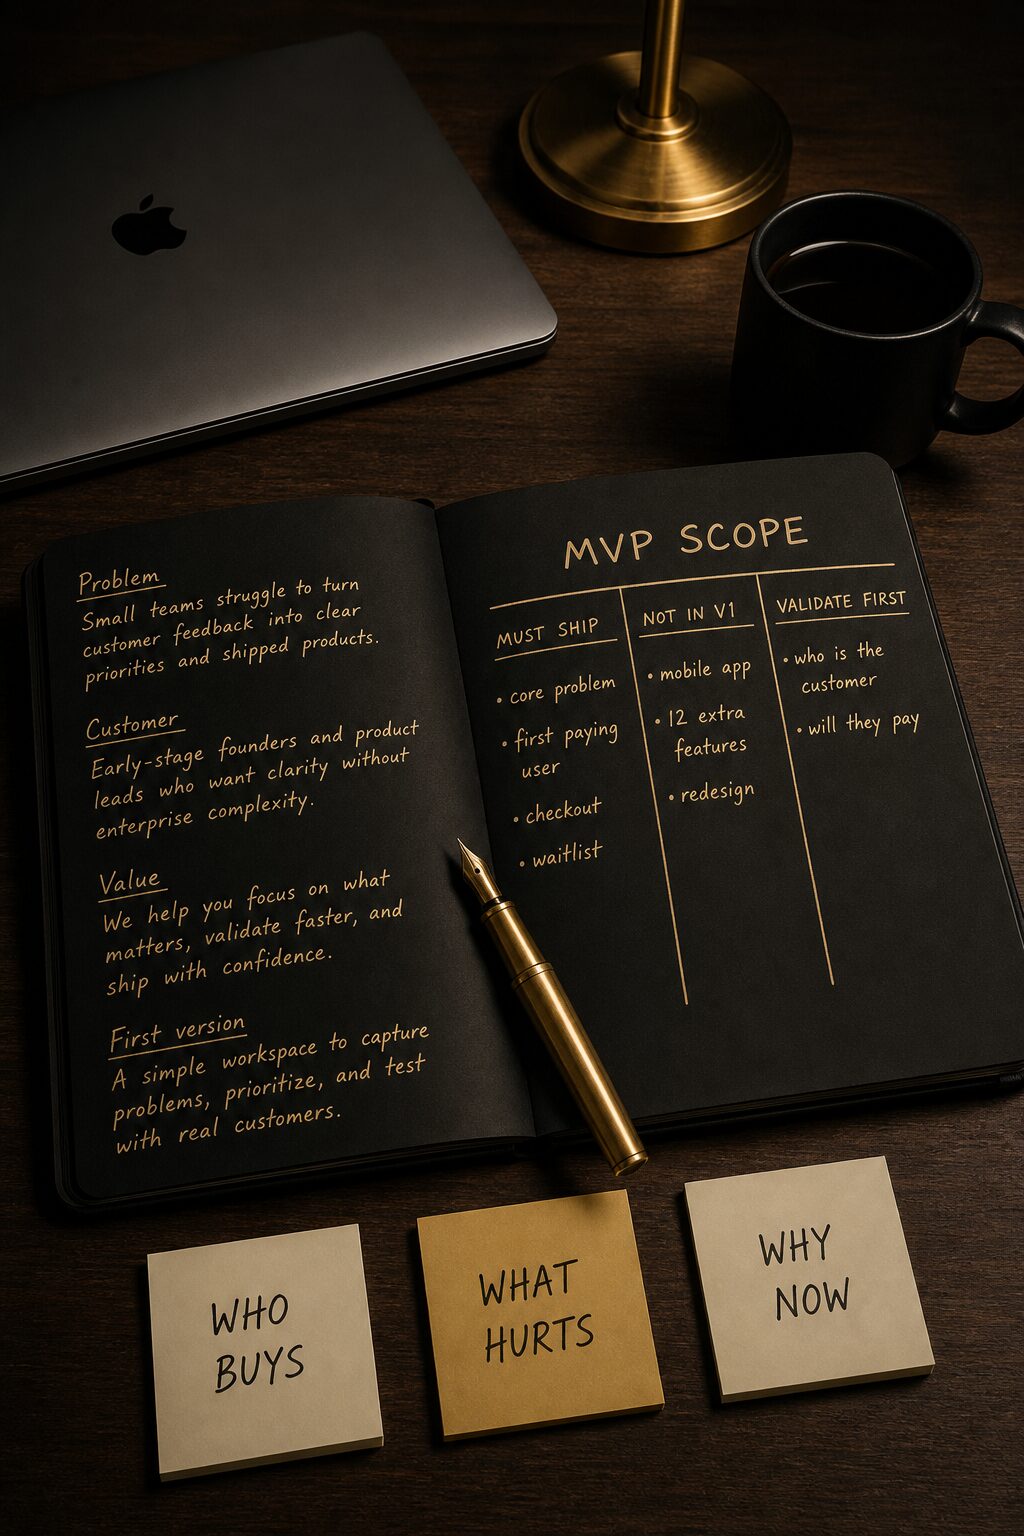 Problem
Small teams struggle to turn
customer feedback into clear
priorities and shipped products.
Customer
Early-stage founders and product
leads who want clarity without
enterprise complexity.
Value
We help you focus on what
matters, validate faster, and
ship with confidence.
First version
A simple workspace to capture
problems, prioritize, and test
with real customers.
MVP SCOPE
MUST SHIP
• core problem
• first paying
user
• checkout
• waitlist
NOT IN V1
• mobile app
• 12 extra
features
• redesign
VALIDATE FIRST
• who is the
customer
• will they pay
WHO
BUYS
WHAT
HURTS
WHY
NOW